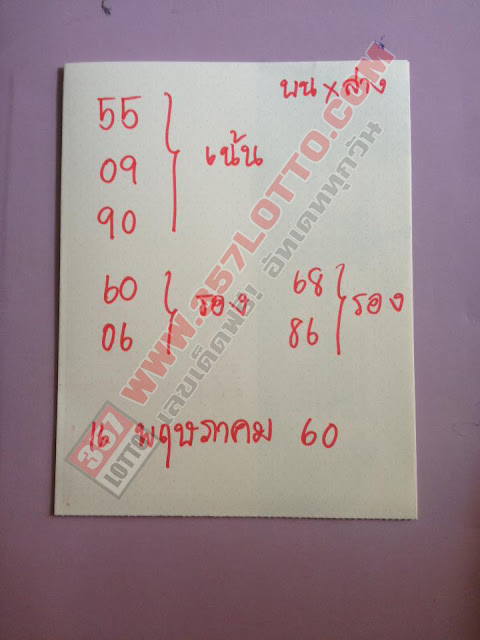 บน x ล่าง
55
09
90
เน้น
60
06
รอง
68
86
รอง
16 พฤษภาคม 60
357
LOTTO
WWW.357LOTTO.COM
เลขเด็ดฟรี! อัพเดททุกวัน